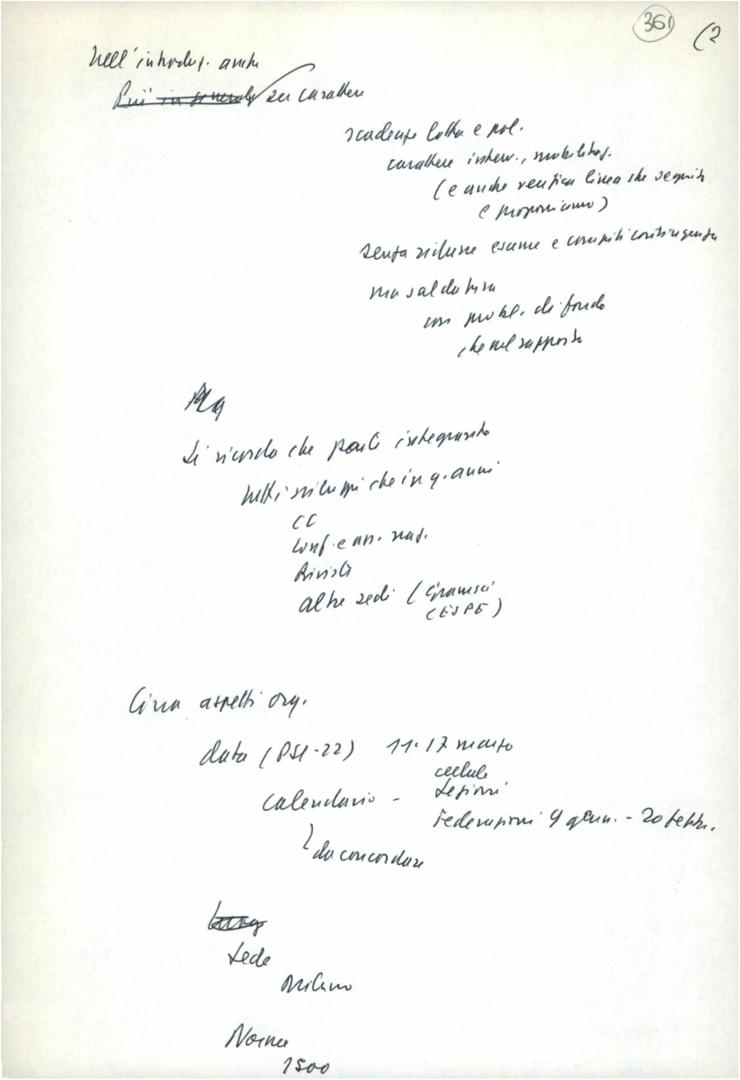 361 (2
Nell'introduz. anche
Più in generale su carattere
scadenze lotta e pol.
carattere interv., mobilitaz.
(e anche verifica linea che seguiamo
e proponiamo)
senza ridurre esame e compiti contingenza
ma saldatura
con probl. di fondo
che nel rapporto
Si ricordo che parte integrante
tutti sviluppi che in q. anni
CC
Conf. e ass. naz.
Rivista
altre sedi (Gramsci
CESPE)
Circa aspetti org.
data (PSI-22) 11-17 marzo
cellule
Sezioni
calendario -
Federazioni 9 genn. - 20 febbr.
da concordare
Sede
Milano
Norma
1500